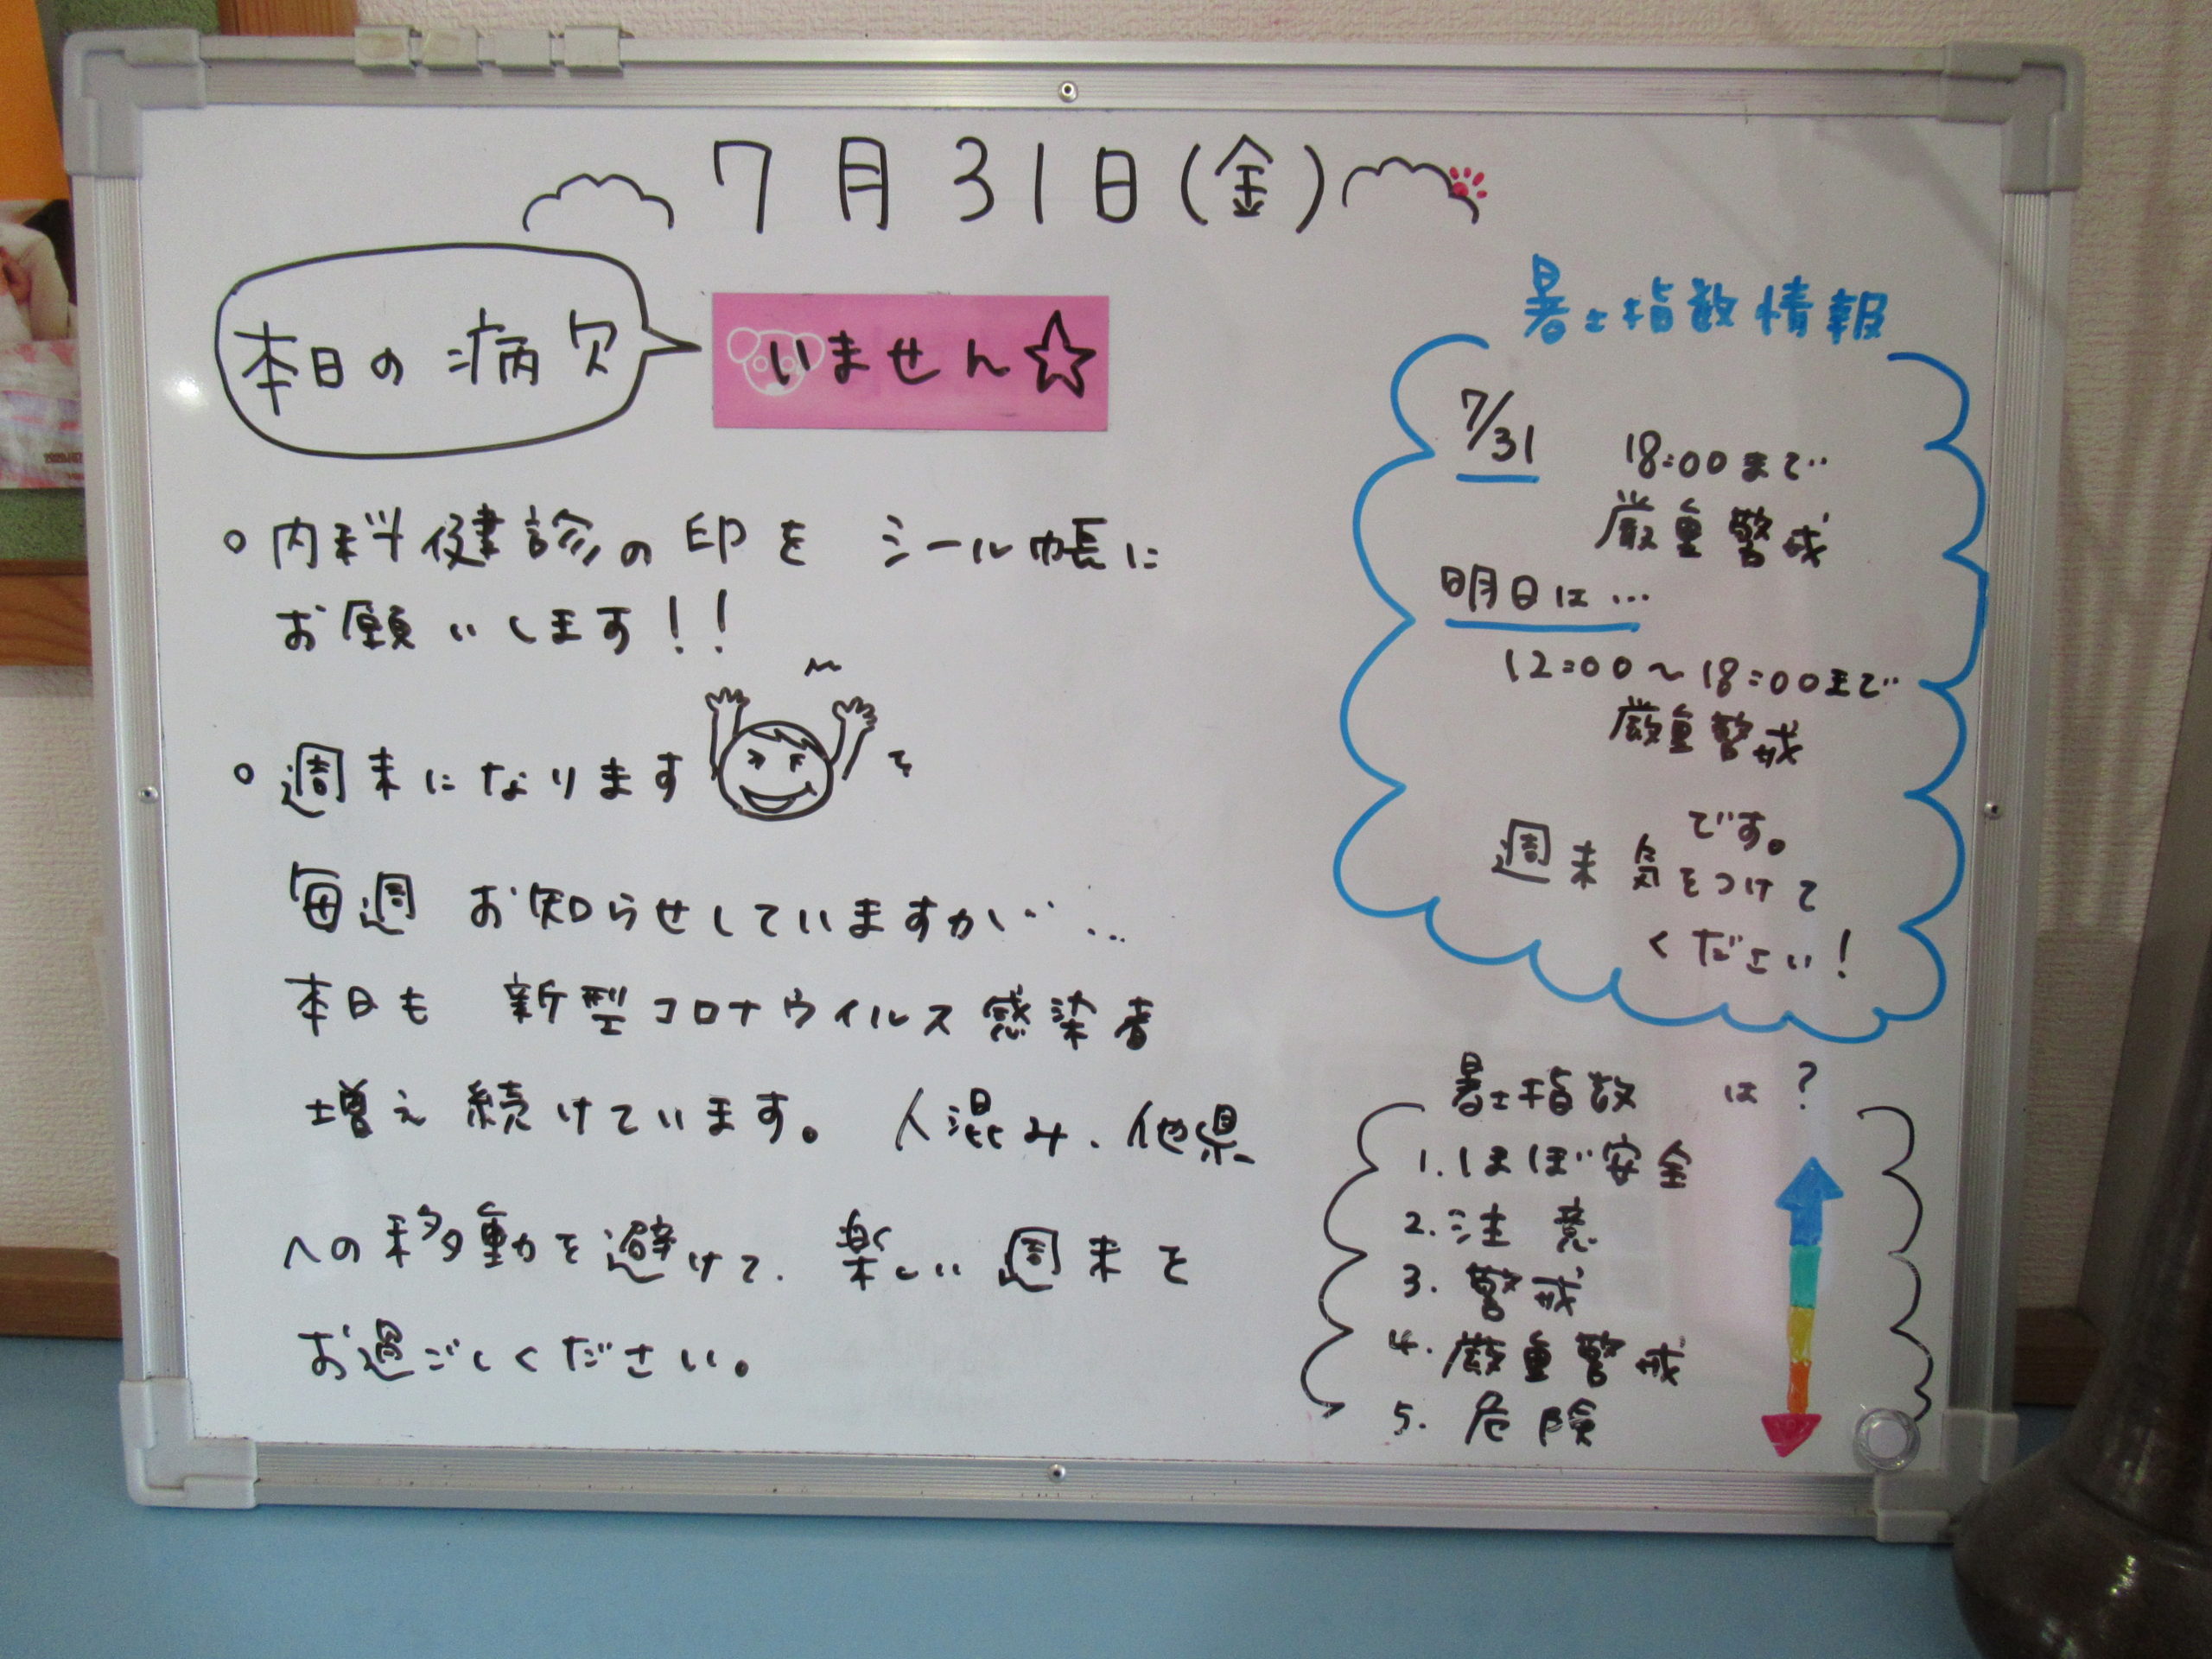 7月31日(金)
本日の病欠
いません☆
。内科健診の印を シール帳に
お願いします!!
。週末になります
毎週 お知らせしていますが…
本日も 新型コロナウイルス感染者
増え続けています。 人混み、他県
への移動を避けて、楽しい週末を
お過ごしください。
暑さ指数情報
7/31 18:00まで
厳重警戒
明日は…
12:00〜18:00まで
厳重警戒
です。
週末気をつけて
ください!
暑さ指数 は?
1.ほぼ安全
2.注意
3.警戒
4.厳重警戒
5.危険